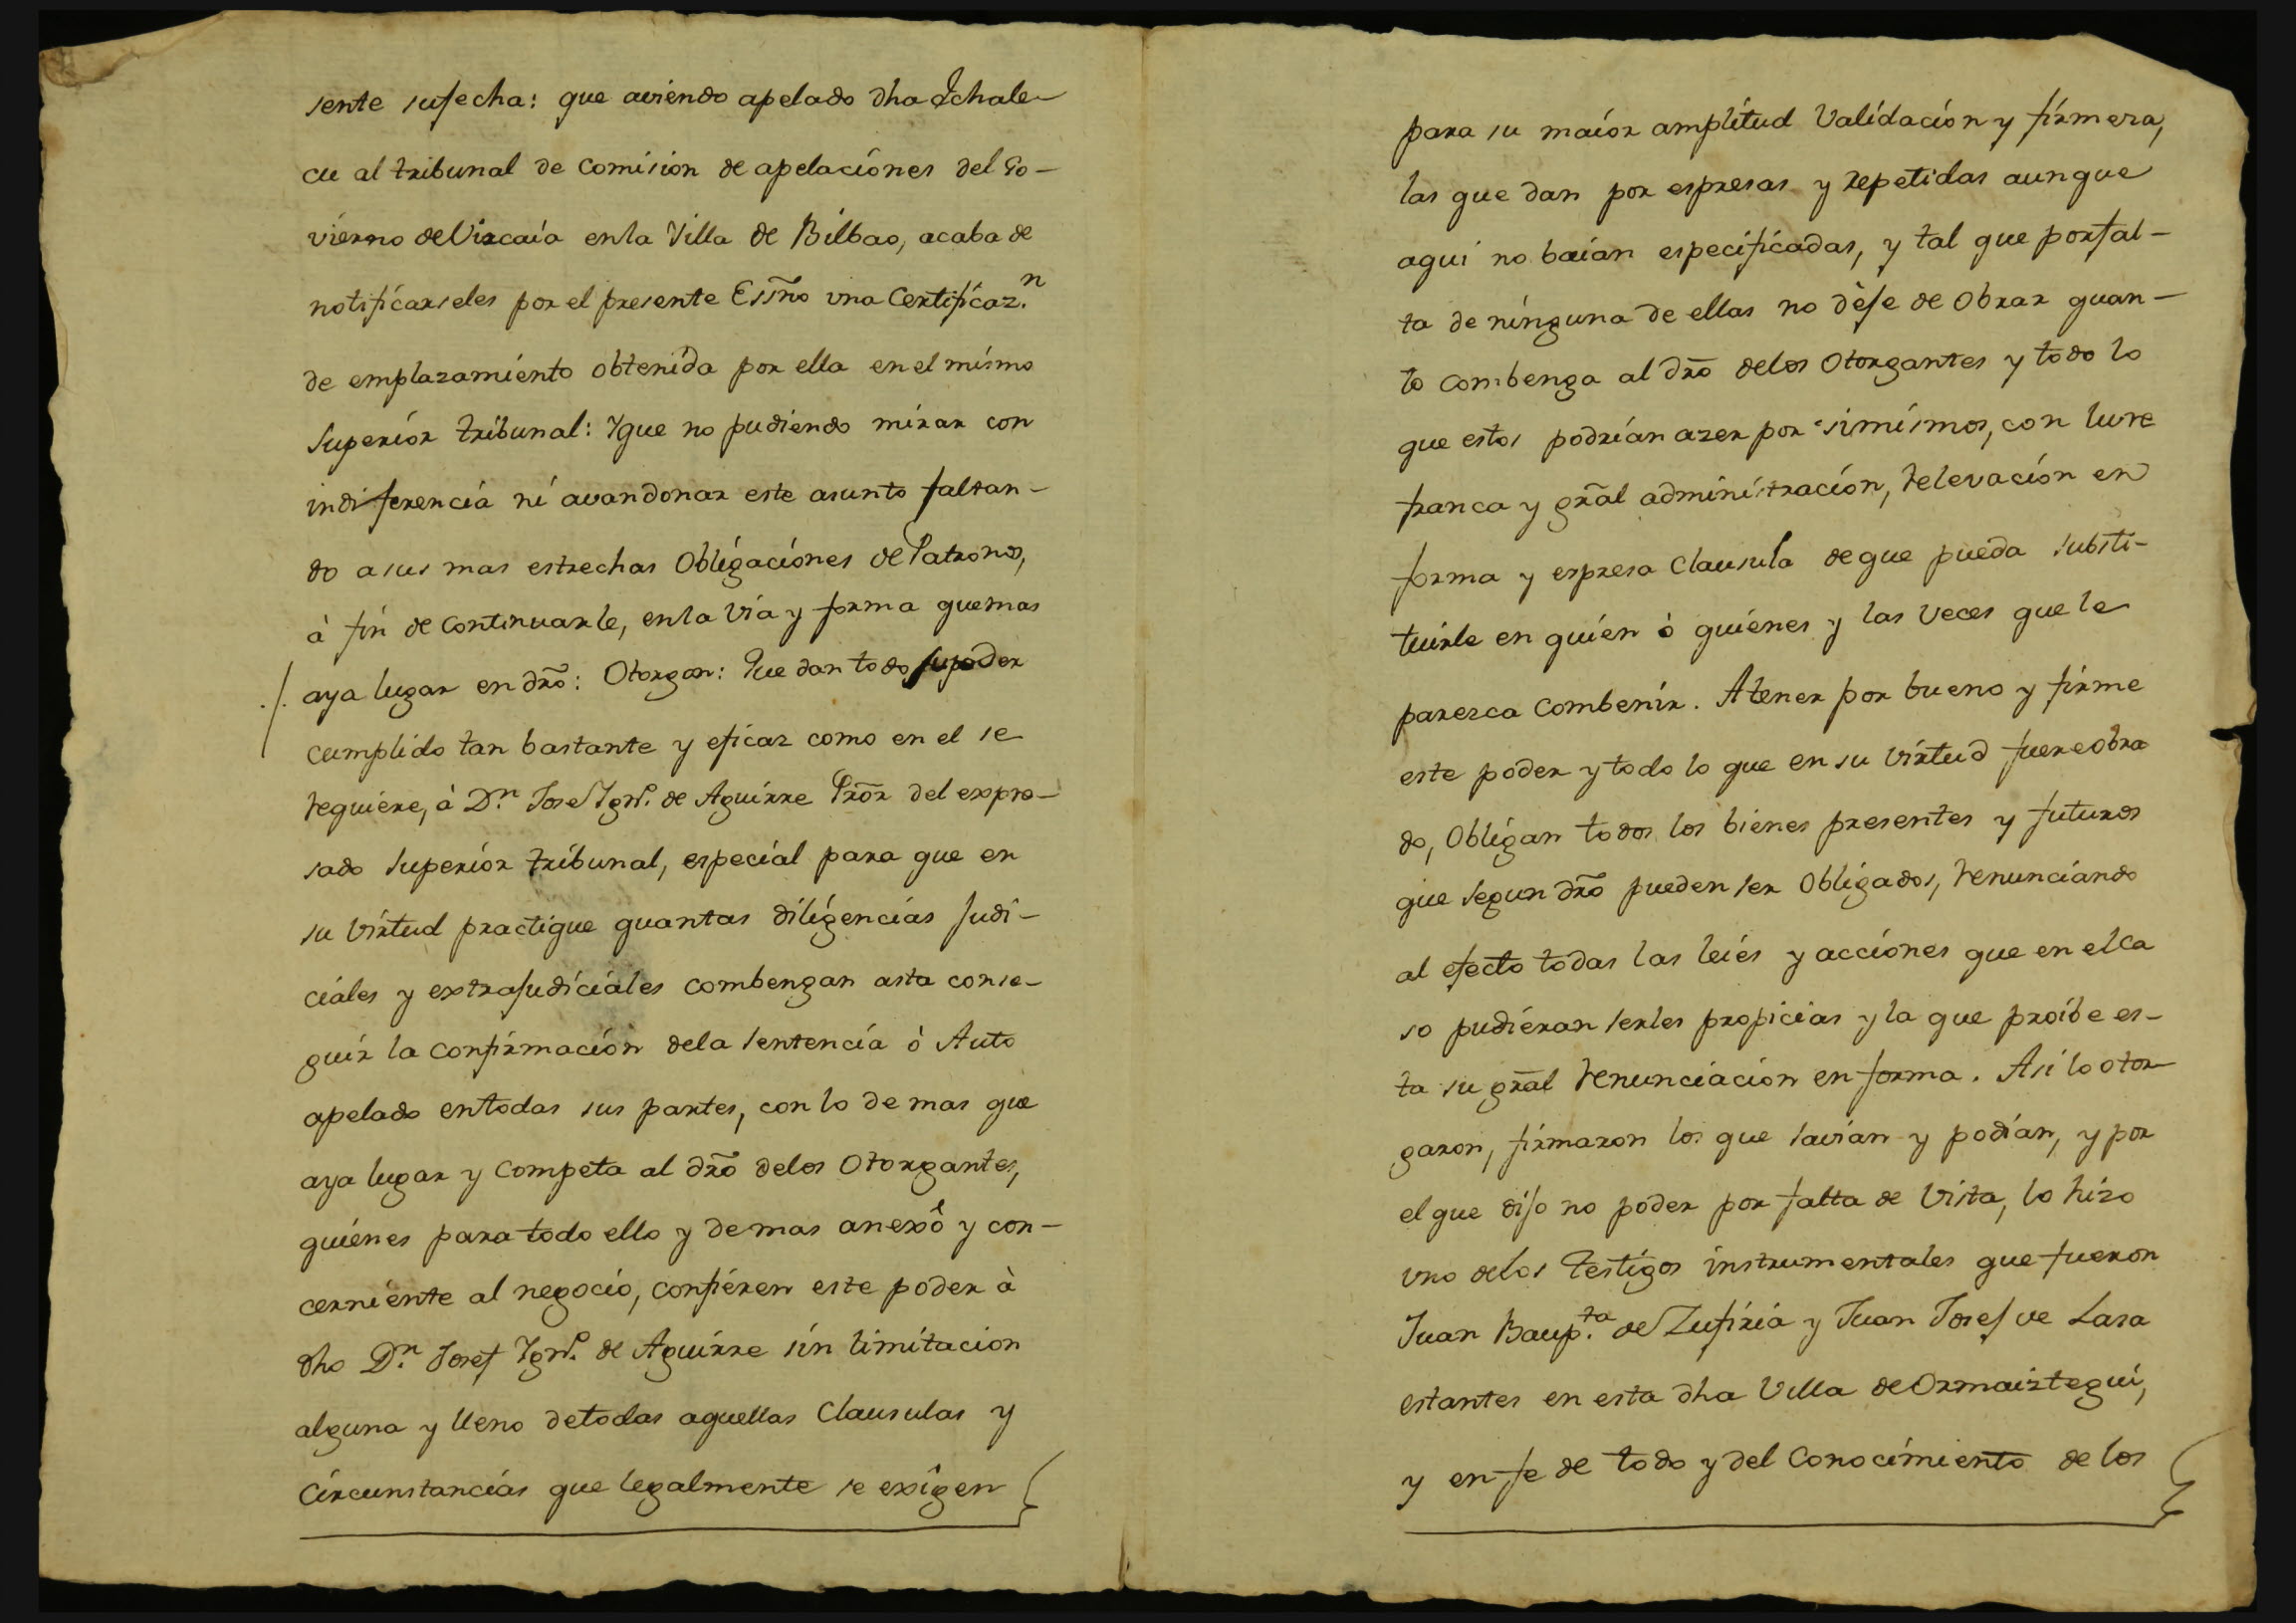 sente sufecha: que aviendo apelado dha Echale-
cu al tribunal de Comision de apelaciones del Go-
vierno de Vizcaia en la Villa de Bilbao, acaba de
notificarseles por el presente Essño vna Certificaz.n
de emplazamiento obtenida por ella en el mismo
Superior tribunal: Yque no pudiendo mirar con
indiferencia ni avandonar este asunto faltan-
do asus mas estrechas Obligaciones de Patronos,
à fin de Continuarle, en la via y forma quemas
aya lugar en drõ: Otorgan: Que dan todo supoder
cumplido tan bastante y eficaz como en el se
requiere, à D.n Josef Ign.o de Aguirre Prõr del expre-
sado Superior tribunal, especial para que en
su virtud practique quantas diligencias Judi-
ciales y extrajudiciales combengan asta conse-
guir la Confirmación dela Sentencia ò Auto
apelado entodas sus partes, con lo de mas que
aya lugar y Competa al drõ delos Otorgantes,
quienes para todo ello y demas anexô y con-
cerniente al negocio, confieren este poder à
dho D.n Josef Ign.o de Aguirre sin limitacion
alguna y lleno detodas aquellas Clausulas y
Circunstancias que legalmente se exîgen
para su maior amplitud Validación y firmeza,
las que dan por espresas y repetidas aunque
aqui no baian especificadas, y tal que porfal-
ta de ninguna de ellas no dèje de Obrar quan-
to combenga al drõ delos Otorgantes y todo lo
que estos podrían azer por simismos, con livre
franca y grãl administración, relevación en
forma y espresa Clausula deque pueda substi-
tuirle en quien ò quienes y las veces que le
paresca Combenir. Atener por bueno y firme
este poder y todo lo que en su virtud fuere obra
do, Obligan todos los bienes presentes y futuros
que Segun drõ pueden ser Obligados, renunciando
al efecto todas las leies y acciones que en el ca
so pudieran serles propicias y la que proibe es-
ta su grãl renunciacion en forma. Asi lo otor
garon, firmaron los que savian y podian, y por
el que dijo no poder por falta de Vista, lo hizo
vno delos testigos instrumentales que fueron
Juan Baup.ta de Zufiria y Juan Josef de Lasa
estantes en esta dha Villa de Ormaiztegui,
y en fe de todo y del Conocimiento de los